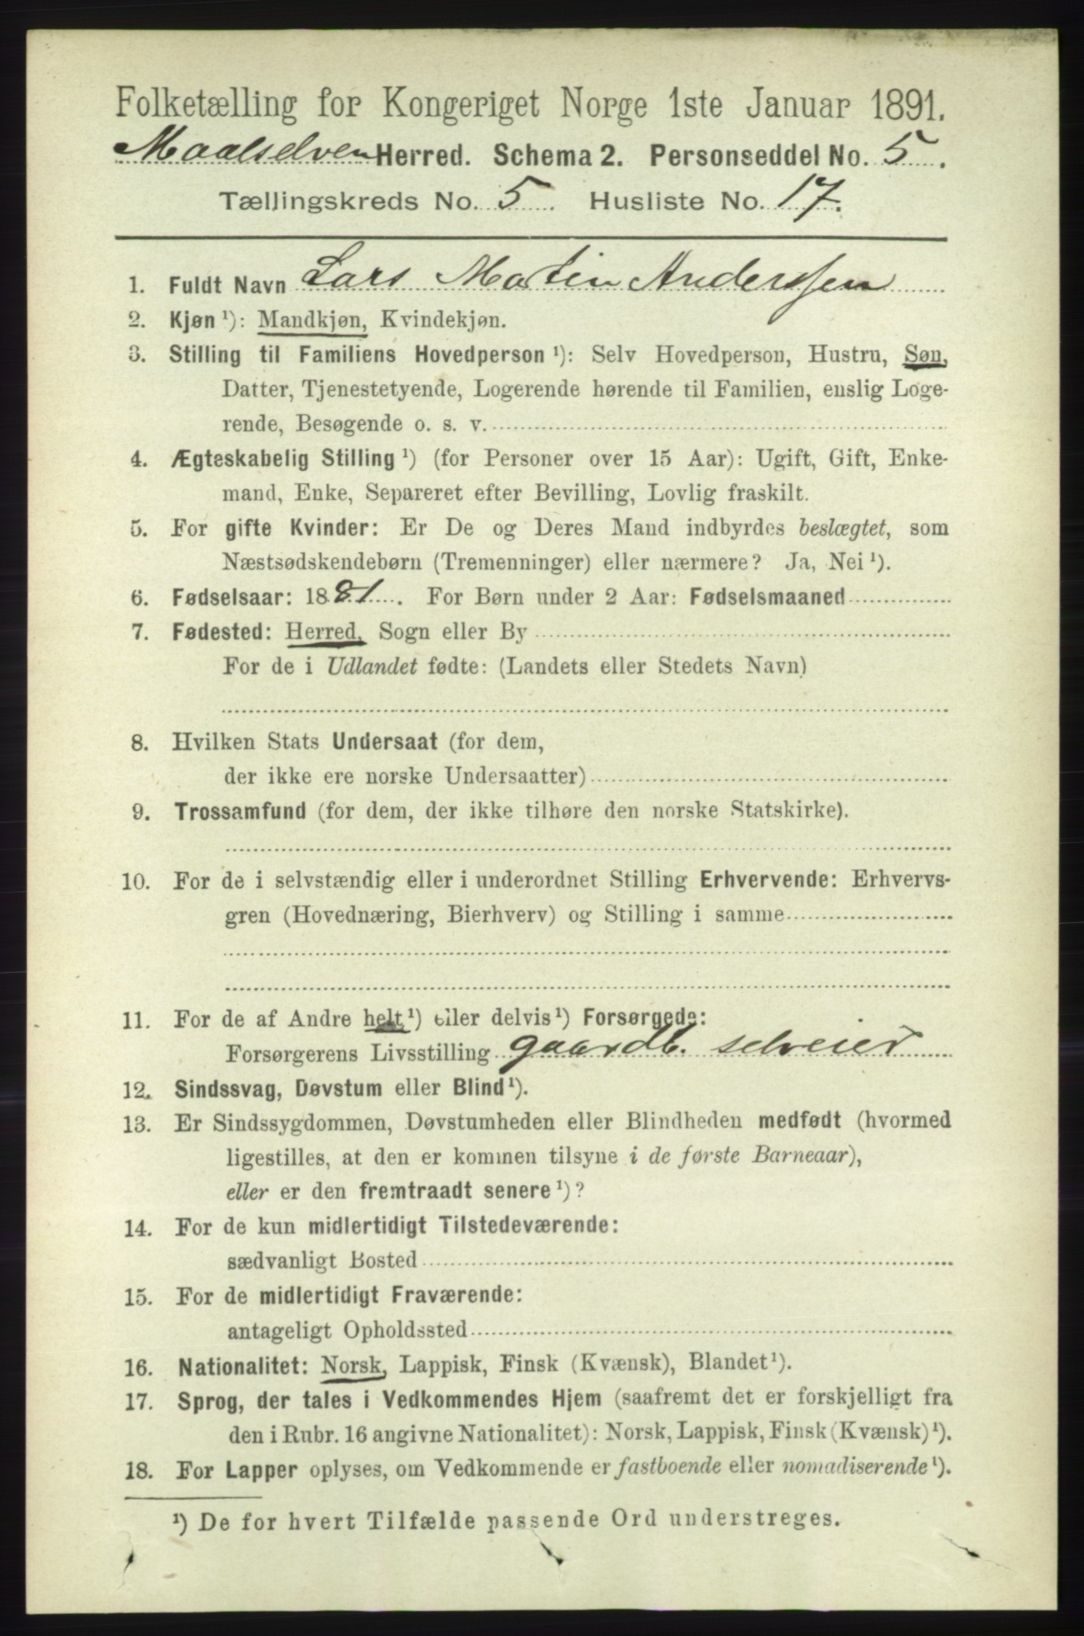 Folketælling for Kongeriget Norge 1ste Januar 1891.
Maalselven Herred. Schema 2. Personseddel No. 5.
Tællingskreds No. 5. Husliste No. 17.
1. Fuldt Navn Lars Martin Anderssen
2. Kjøn ¹): Mandkjøn, Kvindekjøn.
3. Stilling til Familiens Hovedperson ¹): Selv Hovedperson, Hustru, Søn,
Datter, Tjenestetyende, Logerende hørende til Familien, enslig Loge-
rende, Besøgende o. s. v.
4. Ægteskabelig Stilling ¹) (for Personer over 15 Aar): Ugift, Gift, Enke-
mand, Enke, Separeret efter Bevilling, Lovlig fraskilt.
5. For gifte Kvinder: Er De og Deres Mand indbyrdes beslægtet, som
Næstsødskendebørn (Tremenninger) eller nærmere? Ja, Nei ¹).
6. Fødselsaar: 1881. For Børn under 2 Aar: Fødselsmaaned
7. Fødested: Herred, Sogn eller By
For de i Udlandet fødte: (Landets eller Stedets Navn)
8. Hvilken Stats Undersaat (for dem,
der ikke ere norske Undersaatter)
9. Trossamfund (for dem, der ikke tilhøre den norske Statskirke).
10. For de i selvstændig eller i underordnet Stilling Erhvervende: Erhvervs-
gren (Hovednæring, Bierhverv) og Stilling i samme
11. For de af Andre helt ¹) eller delvis ¹) Forsørgede:
Forsørgerens Livsstilling gaardb. selveier
12. Sindssvag, Døvstum eller Blind ¹).
13. Er Sindssygdommen, Døvstumheden eller Blindheden medfødt (hvormed
ligestilles, at den er kommen tilsyne i de første Barneaar),
eller er den fremtraadt senere ¹)?
14. For de kun midlertidigt Tilstedeværende:
sædvanligt Bosted
15. For de midlertidigt Fraværende:
antageligt Opholdssted
16. Nationalitet: Norsk, Lappisk, Finsk (Kvænsk), Blandet ¹).
17. Sprog, der tales i Vedkommendes Hjem (saafremt det er forskjelligt fra
den i Rubr. 16 angivne Nationalitet): Norsk, Lappisk, Finsk (Kvænsk) ¹).
18. For Lapper oplyses, om Vedkommende er fastboende eller nomadiserende ¹).
¹) De for hvert Tilfælde passende Ord understreges.